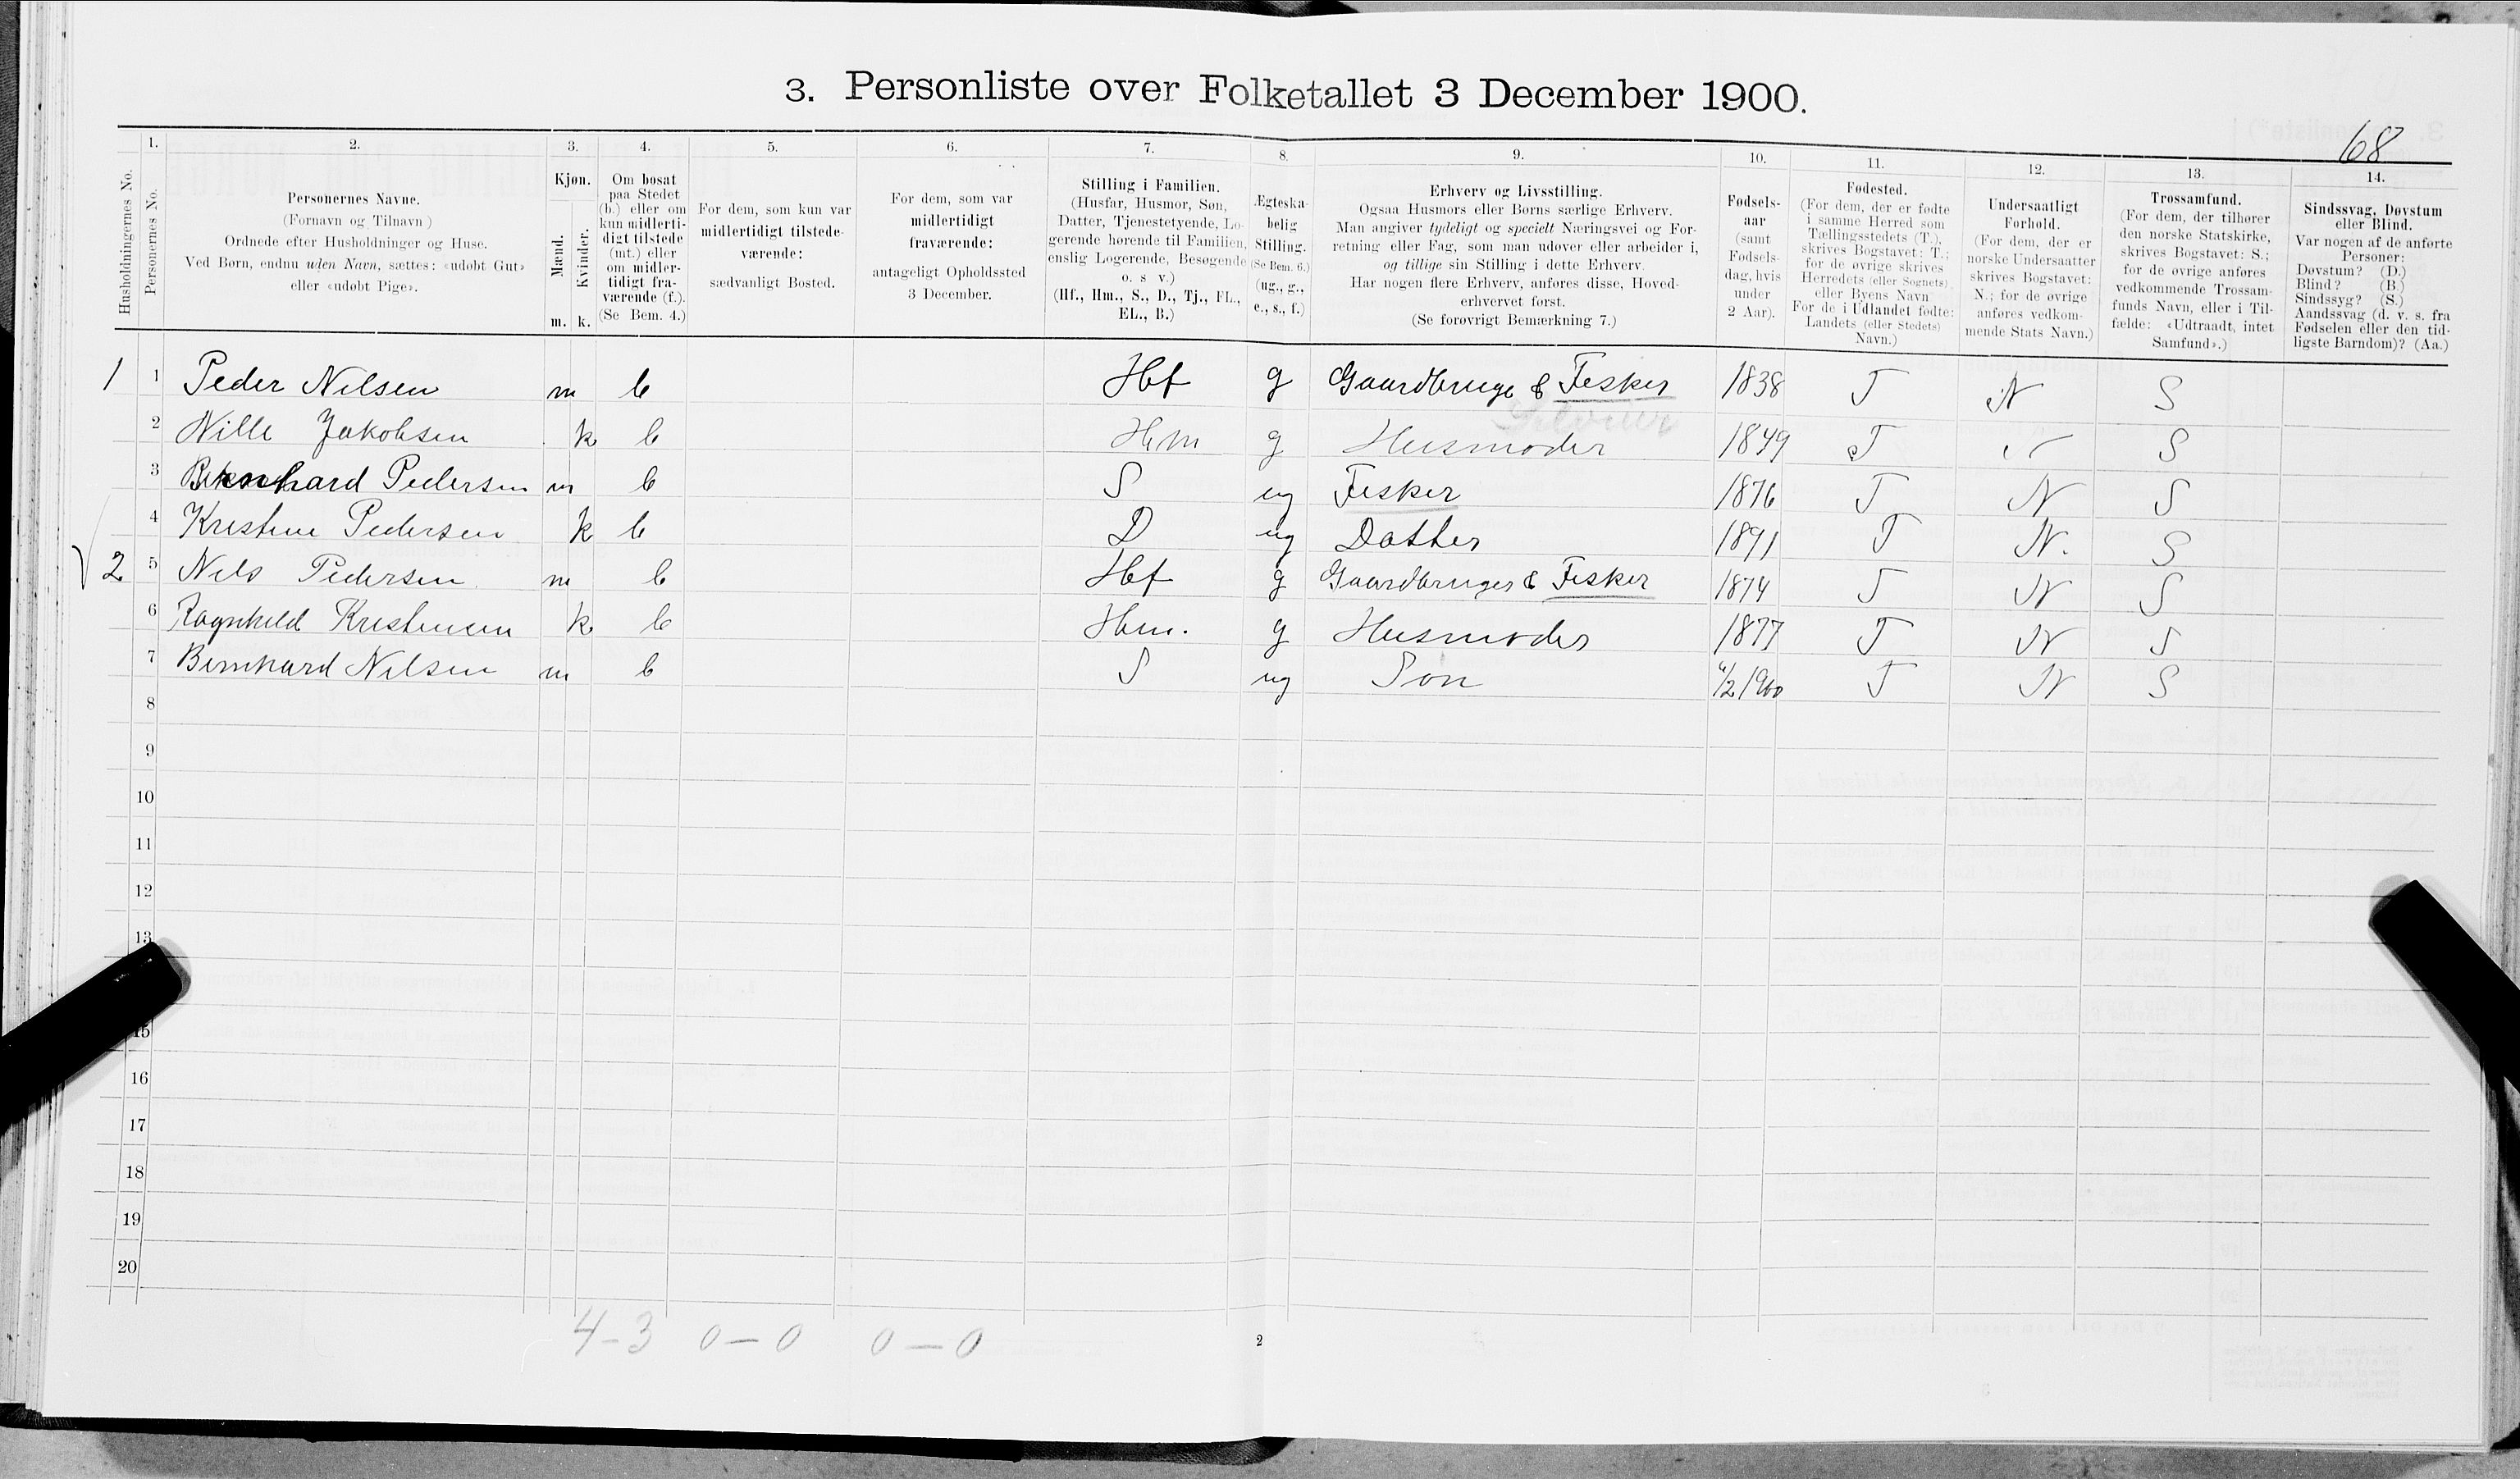 3. Personliste over Folketallet 3 December 1900.
68
Husholdningernes No.
1.
Personernes No.
2.
Personernes Navne.
(Fornavn og Tilnavn )
Ordnede efter Husholdninger og Huse.
Ved Børn, endnu uden Navn, sættes: «udøbt Gut»
eller «udøbt Pige».
3.
Kjøn.
Mænd.
Kvinder.
m. k.
4.
Om bosat
paa Stedet
(b.) eller om
kun midlerti-
digt tilstede
(mt.) eller
om midler-
tidigt fra-
værende (f.).
(Se Bem. 4.)
5.
For dem, som kun var
midlertidigt tilstede-
værende:
sædvanligt Bosted.
6.
For dem, som var
midlertidigt
fraværende:
antageligt Opholdssted
3 December.
7.
Stilling i Familien.
(Husfar, Husmor, Søn,
Datter, Tjenestetyende, Lo-
gerende hørende til Familien,
enslig Logerende, Besøgende
o. s v.)
(Hf., Hm., S., D., Tj., FL.,
EL., B.)
8.
Ægteska-
belig
Stilling.
(Se Bem. 6.)
(ug., g.,
e., s., f.)
9.
Erhverv og Livsstilling.
Ogsaa Husmors eller Børns særlige Erhverv.
Man angiver tydeligt og specielt Næringsvei og For-
retning eller Fag, som man udøver eller arbeider i,
og tillige sin Stilling i dette Erhverv.
Har nogen flere Erhverv, anføres disse, Hoved-
erhvervet først.
(Se forøvrigt Bemærkning 7.)
10.
Fødsels-
aar
(samt
Fødsels-
dag, hvis
under
2 Aar).
11.
Fødested.
(For dem, der er fødte
i samme Herred som
Tællingsstedets (T.),
skrives Bogstavet: T.;
for de øvrige skrives
Herredets (eller Sognets)
eller Byens Navn
For de i Udlandet fødte:
Landets (eller Stedets)
Navn.)
12.
Undersaatligt
Forhold.
(For dem, der er
norske Undersaatter
skrives Bogstavet:
N.; for de øvrige
anføres vedkom-
mende Stats Navn.)
13.
Trossamfund.
(For dem, der tilhører
den norske Statskirke,
skrives Bogstavet: S.;
for de øvrige anføres
vedkommende Trossam-
funds Navn, eller i Til-
fælde: «Udtraadt, intet
Samfund».)
14.
Sindssvag, Døvstum
eller Blind.
Var nogen af de anførte
Personer:
Døvstum? (D.)
Blind? (B.)
Sindssyg? (S.)
Aandssvag (d. v. s. fra
Fødselen eller den tid-
ligste Barndom)? (Aa.)
1 1 Peder Nilsen m b Hf g Gaardbruge & Fesker 1838 T N S
2 Nille Jakobsen k b Hm g Husmoder 1849 T S
3 Bernhard Pedersen m b S ug Fesker 1876 T N S
4 Kristine Pedersen k b D ug Datter 1891 T N. S
2 5 Nels Pedersen m b Hf g Gaardbruger & Fesker 1874 T N S
6 Ragnhild Kristensen k b Hm. g Husmoder 1877 T N S
7 Bernhard Nilsen m b S ug Søn /2 1900 T N S
8
9
10
11
12
13
15
16
17
18
19
20
4-3 0-0 0-0
2